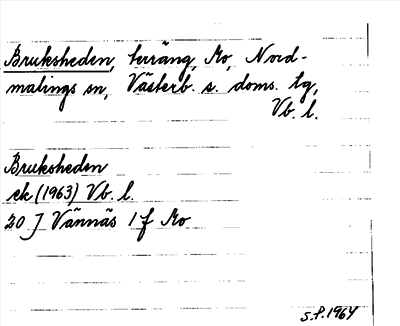 Bruksheden, terräng, Mo, Nord-
malings sn, Västerb. s. doms. tg,
Vb. l.
Bruksheden
ek (1963) Vb. l.
20 J Vännäs 1 f Mo
S.P. 1964